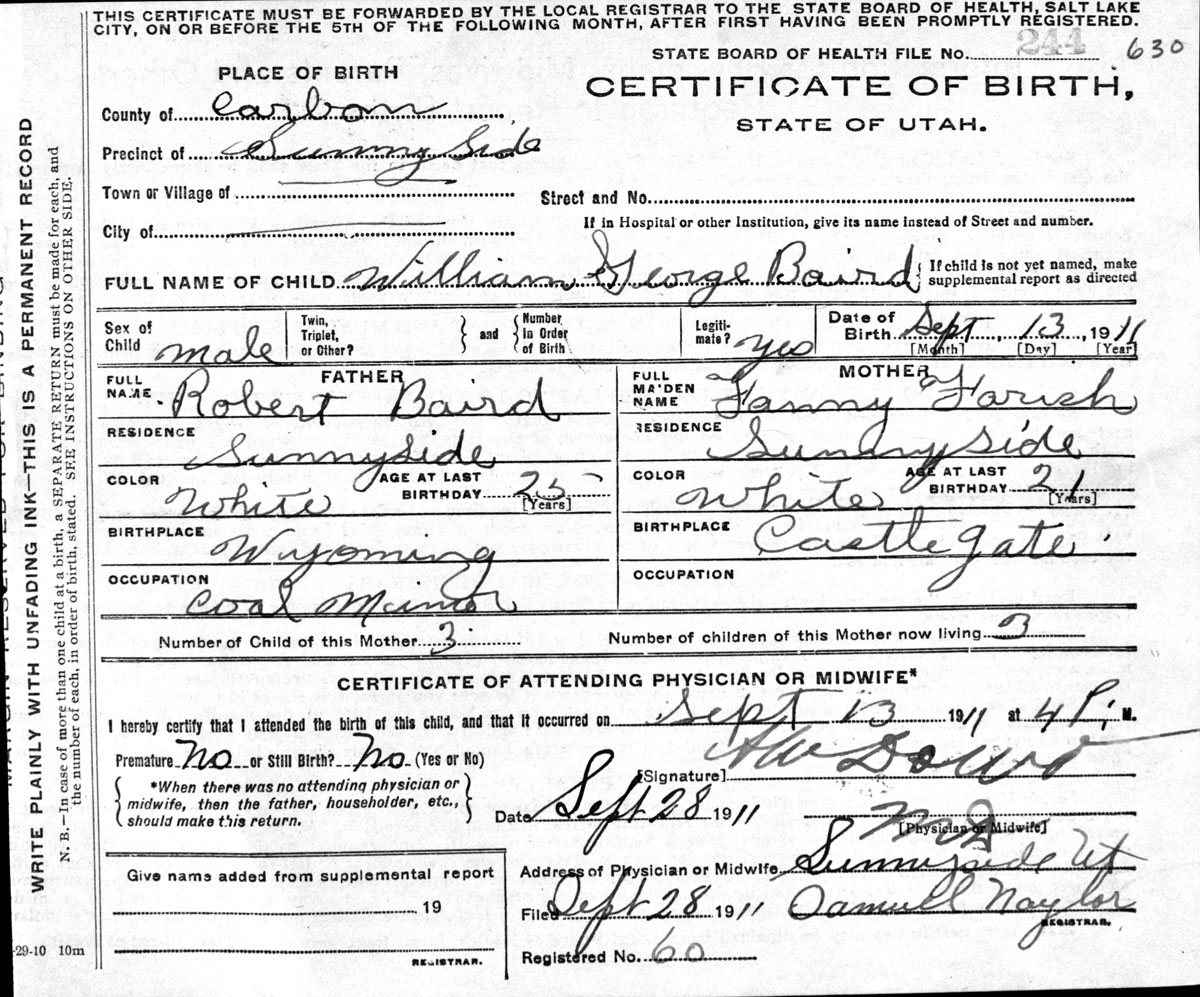 THIS CERTIFICATE MUST BE FORWARDED BY THE LOCAL REGISTRAR TO THE STATE BOARD OF HEALTH, SALT LAKE
CITY, ON OR BEFORE THE 5TH OF THE FOLLOWING MONTH, AFTER FIRST HAVING BEEN PROMPTLY REGISTERED.
STATE BOARD OF HEALTH FILE No. 244 630
PLACE OF BIRTH
CERTIFICATE OF BIRTH,
STATE OF UTAH.
County of Carbon
Precinct of Sunny Side
Town or Village of
Street and No.
City of
If in Hospital or other Institution, give its name instead of Street and number.
FULL NAME OF CHILD William George Baird { If child is not yet named, make
supplemental report as directed
Sex of
Child male
Twin,
Triplet,
or Other? } and { Number
in Order
of Birth
Legiti-
mate? yes
Date of
Birth Sept, 13, 1911
[Month] [Day] [Year]
FATHER
FULL
NAME Robert Baird
RESIDENCE
Sunnyside
COLOR White AGE AT LAST
BIRTHDAY 25
[Years]
BIRTHPLACE
Wyoming
OCCUPATION
Coal Mainor
MOTHER
FULL
MAIDEN
NAME Fanny Farish
RESIDENCE
Sunnyside
COLOR White AGE AT LAST
BIRTHDAY 21
[Years]
BIRTHPLACE
Castle gate
OCCUPATION
Number of Child of this Mother 3
Number of children of this Mother now living 3
CERTIFICATE OF ATTENDING PHYSICIAN OR MIDWIFE*
I hereby certify that I attended the birth of this child, and that it occurred on Sept 13 1911 at 4 P. M.
Premature No or Still Birth? No (Yes or No)
[Signature]
{ *When there was no attending physician or
midwife, then the father, householder, etc.,
should make this return. }
Date Sept 28 1911
[Physician or Midwife]
Give name added from supplemental report
19
REGISTRAR.
Address of Physician or Midwife Sunnyside Ut
Filed Sept 28 1911 Samuell Naylor
REGISTRAR.
Registered No. 60
-29-10 10m
WRITE PLAINLY WITH UNFADING INK—THIS IS A PERMANENT RECORD
N. B.—In case of more than one child at a birth, a SEPARATE RETURN must be made for each, and
the number of each, in order of birth, stated. SEE INSTRUCTIONS ON OTHER SIDE.